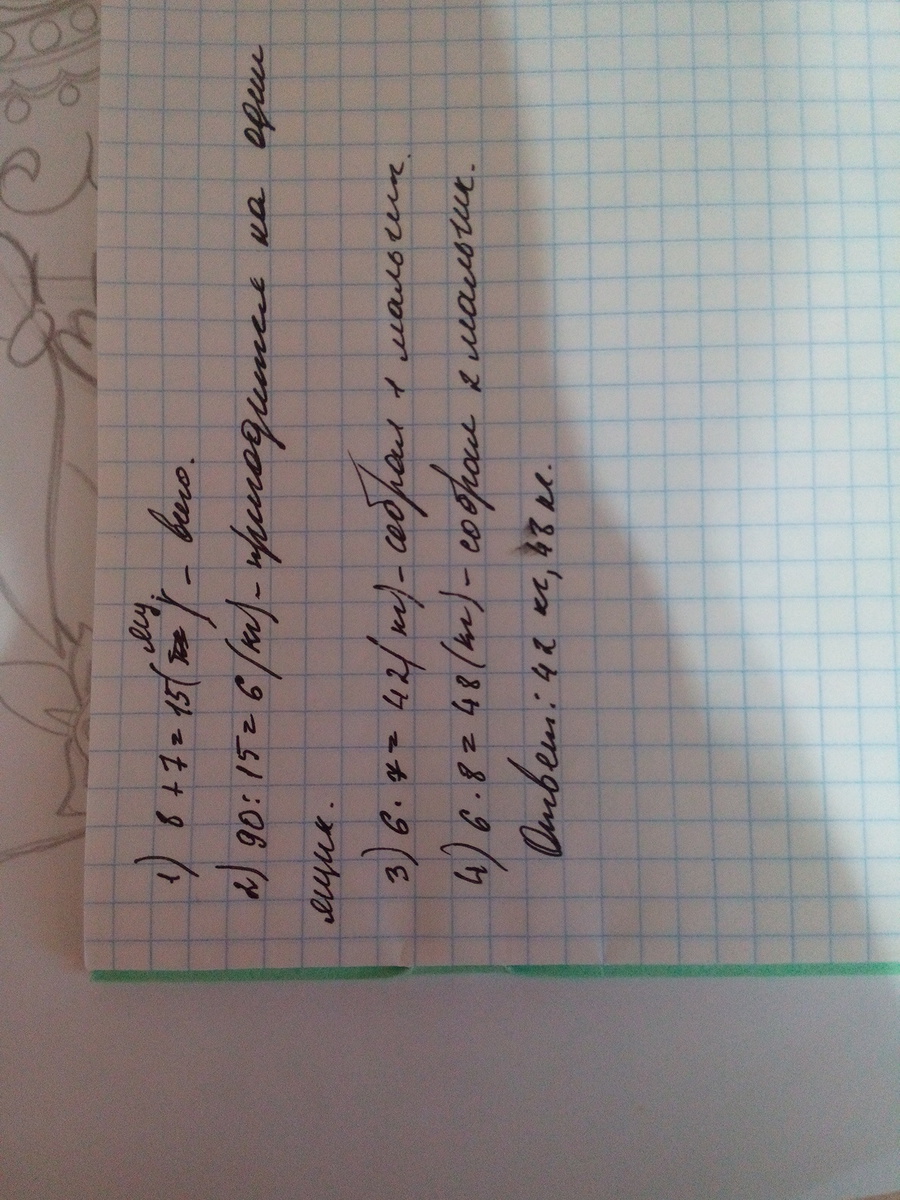 1) 8 + 7 = 15 (ящ.) - всего.
2) 90 : 15 = 6 (кг) - приходится на один
ящик.
3) 6 · 7 = 42 (кг) - собрал 1 мальчик.
4) 6 · 8 = 48 (кг) - собрал 2 мальчик.
Ответ: 42 кг, 48 кг.